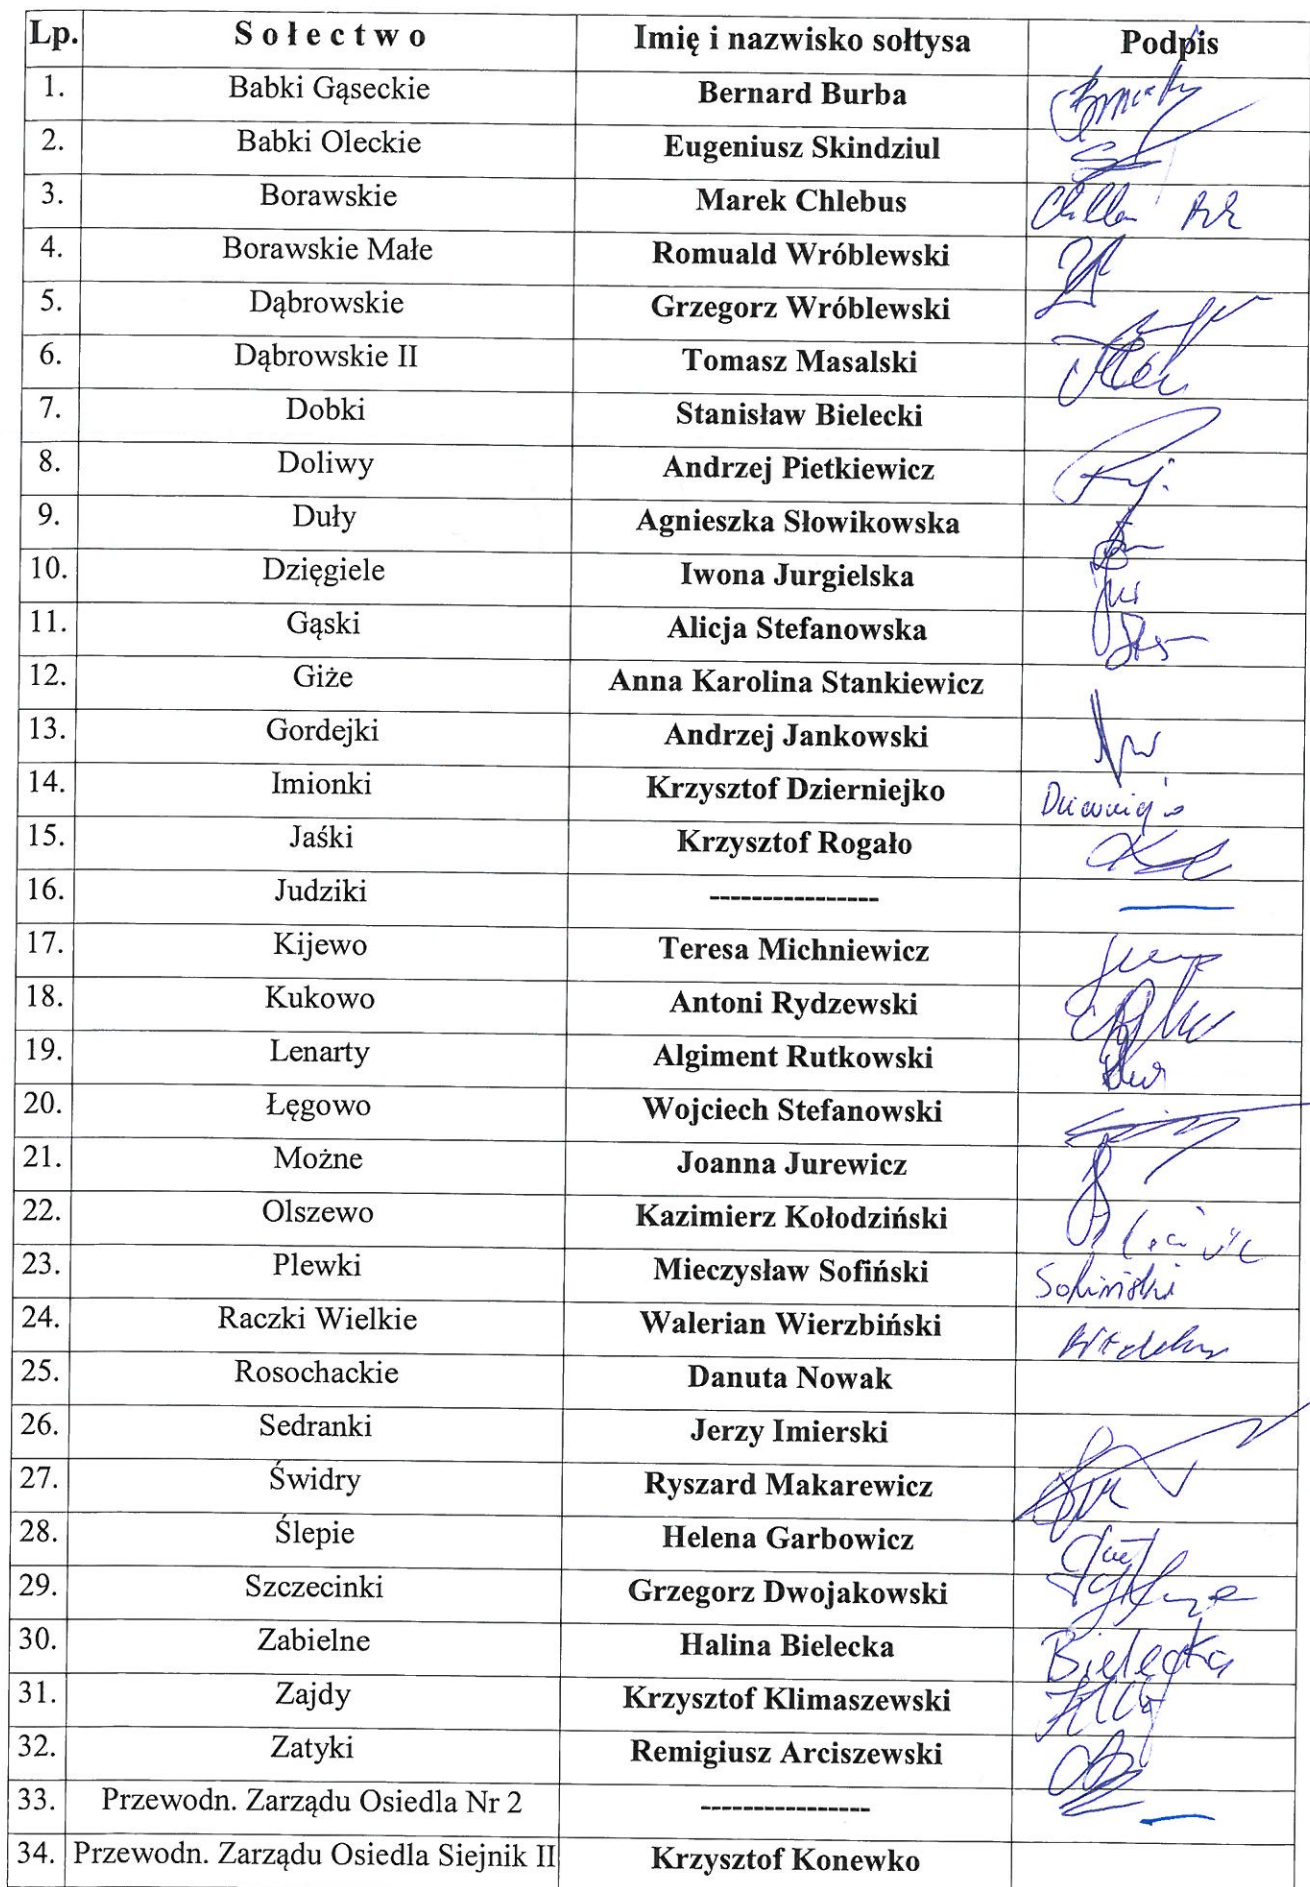 Lp. Sołectwo Imię i nazwisko sołtysa Podpis
1. Babki Gąseckie Bernard Burba
2. Babki Oleckie Eugeniusz Skindziul
3. Borawskie Marek Chlebus
4. Borawskie Małe Romuald Wróblewski
5. Dąbrowskie Grzegorz Wróblewski
6. Dąbrowskie II Tomasz Masalski
7. Dobki Stanisław Bielecki
8. Doliwy Andrzej Pietkiewicz
9. Duły Agnieszka Słowikowska
10. Dzięgiele Iwona Jurgielska
11. Gąski Alicja Stefanowska
12. Giże Anna Karolina Stankiewicz
13. Gordejki Andrzej Jankowski
14. Imionki Krzysztof Dzierniejko
15. Jaśki Krzysztof Rogało
16. Judziki ----------------
17. Kijewo Teresa Michniewicz
18. Kukowo Antoni Rydzewski
19. Lenarty Algiment Rutkowski
20. Łęgowo Wojciech Stefanowski
21. Możne Joanna Jurewicz
22. Olszewo Kazimierz Kołodziński
23. Plewki Mieczysław Sofiński Sofiński
24. Raczki Wielkie Walerian Wierzbiński
25. Rosochackie Danuta Nowak
26. Sedranki Jerzy Imierski
27. Świdry Ryszard Makarewicz
28. Ślepie Helena Garbowicz
29. Szczecinki Grzegorz Dwojakowski
30. Zabielne Halina Bielecka Bielecka
31. Zajdy Krzysztof Klimaszewski
32. Zatyki Remigiusz Arciszewski
33. Przewodn. Zarządu Osiedla Nr 2 ----------------
34. Przewodn. Zarządu Osiedla Siejnik II Krzysztof Konewko